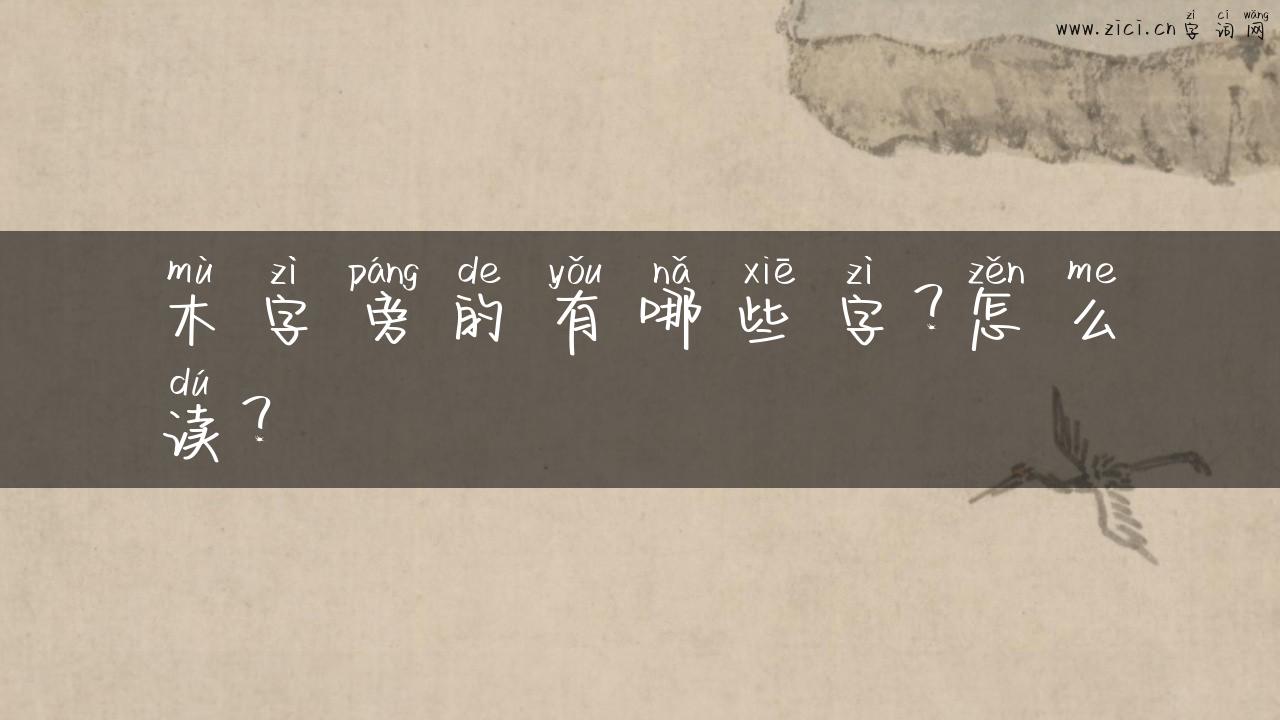 zì cí wǎng
www.zici.cn字词网
mù zì páng de yǒu nǎ xiē zì zěn me
木字旁的有哪些字?怎么
dú
读?